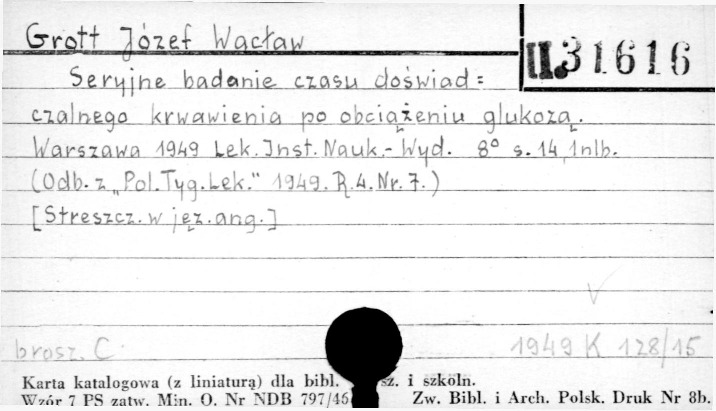 Grott Józef Wacław
II.31616
Seryjne badanie czasu doświad=
czalnego krwawienia po obciążeniu glukozą.
Warszawa 1949 Lek. Inst. Nauk.-Wyd. 8° s. 14, 1nlb.
(Odb. z „Pol. Tyg. Lek." 1949. R. 4. Nr. 7.)
[Streszcz. w jęz. ang.]
brosz. C.
1949 K 128/15
Karta katalogowa (z liniaturą) dla bibl. sz. i szkoln.
Wzór 7 PS zatw. Min. O. Nr NDB 797/46
Zw. Bibl. i Arch. Polsk. Druk Nr 8b.